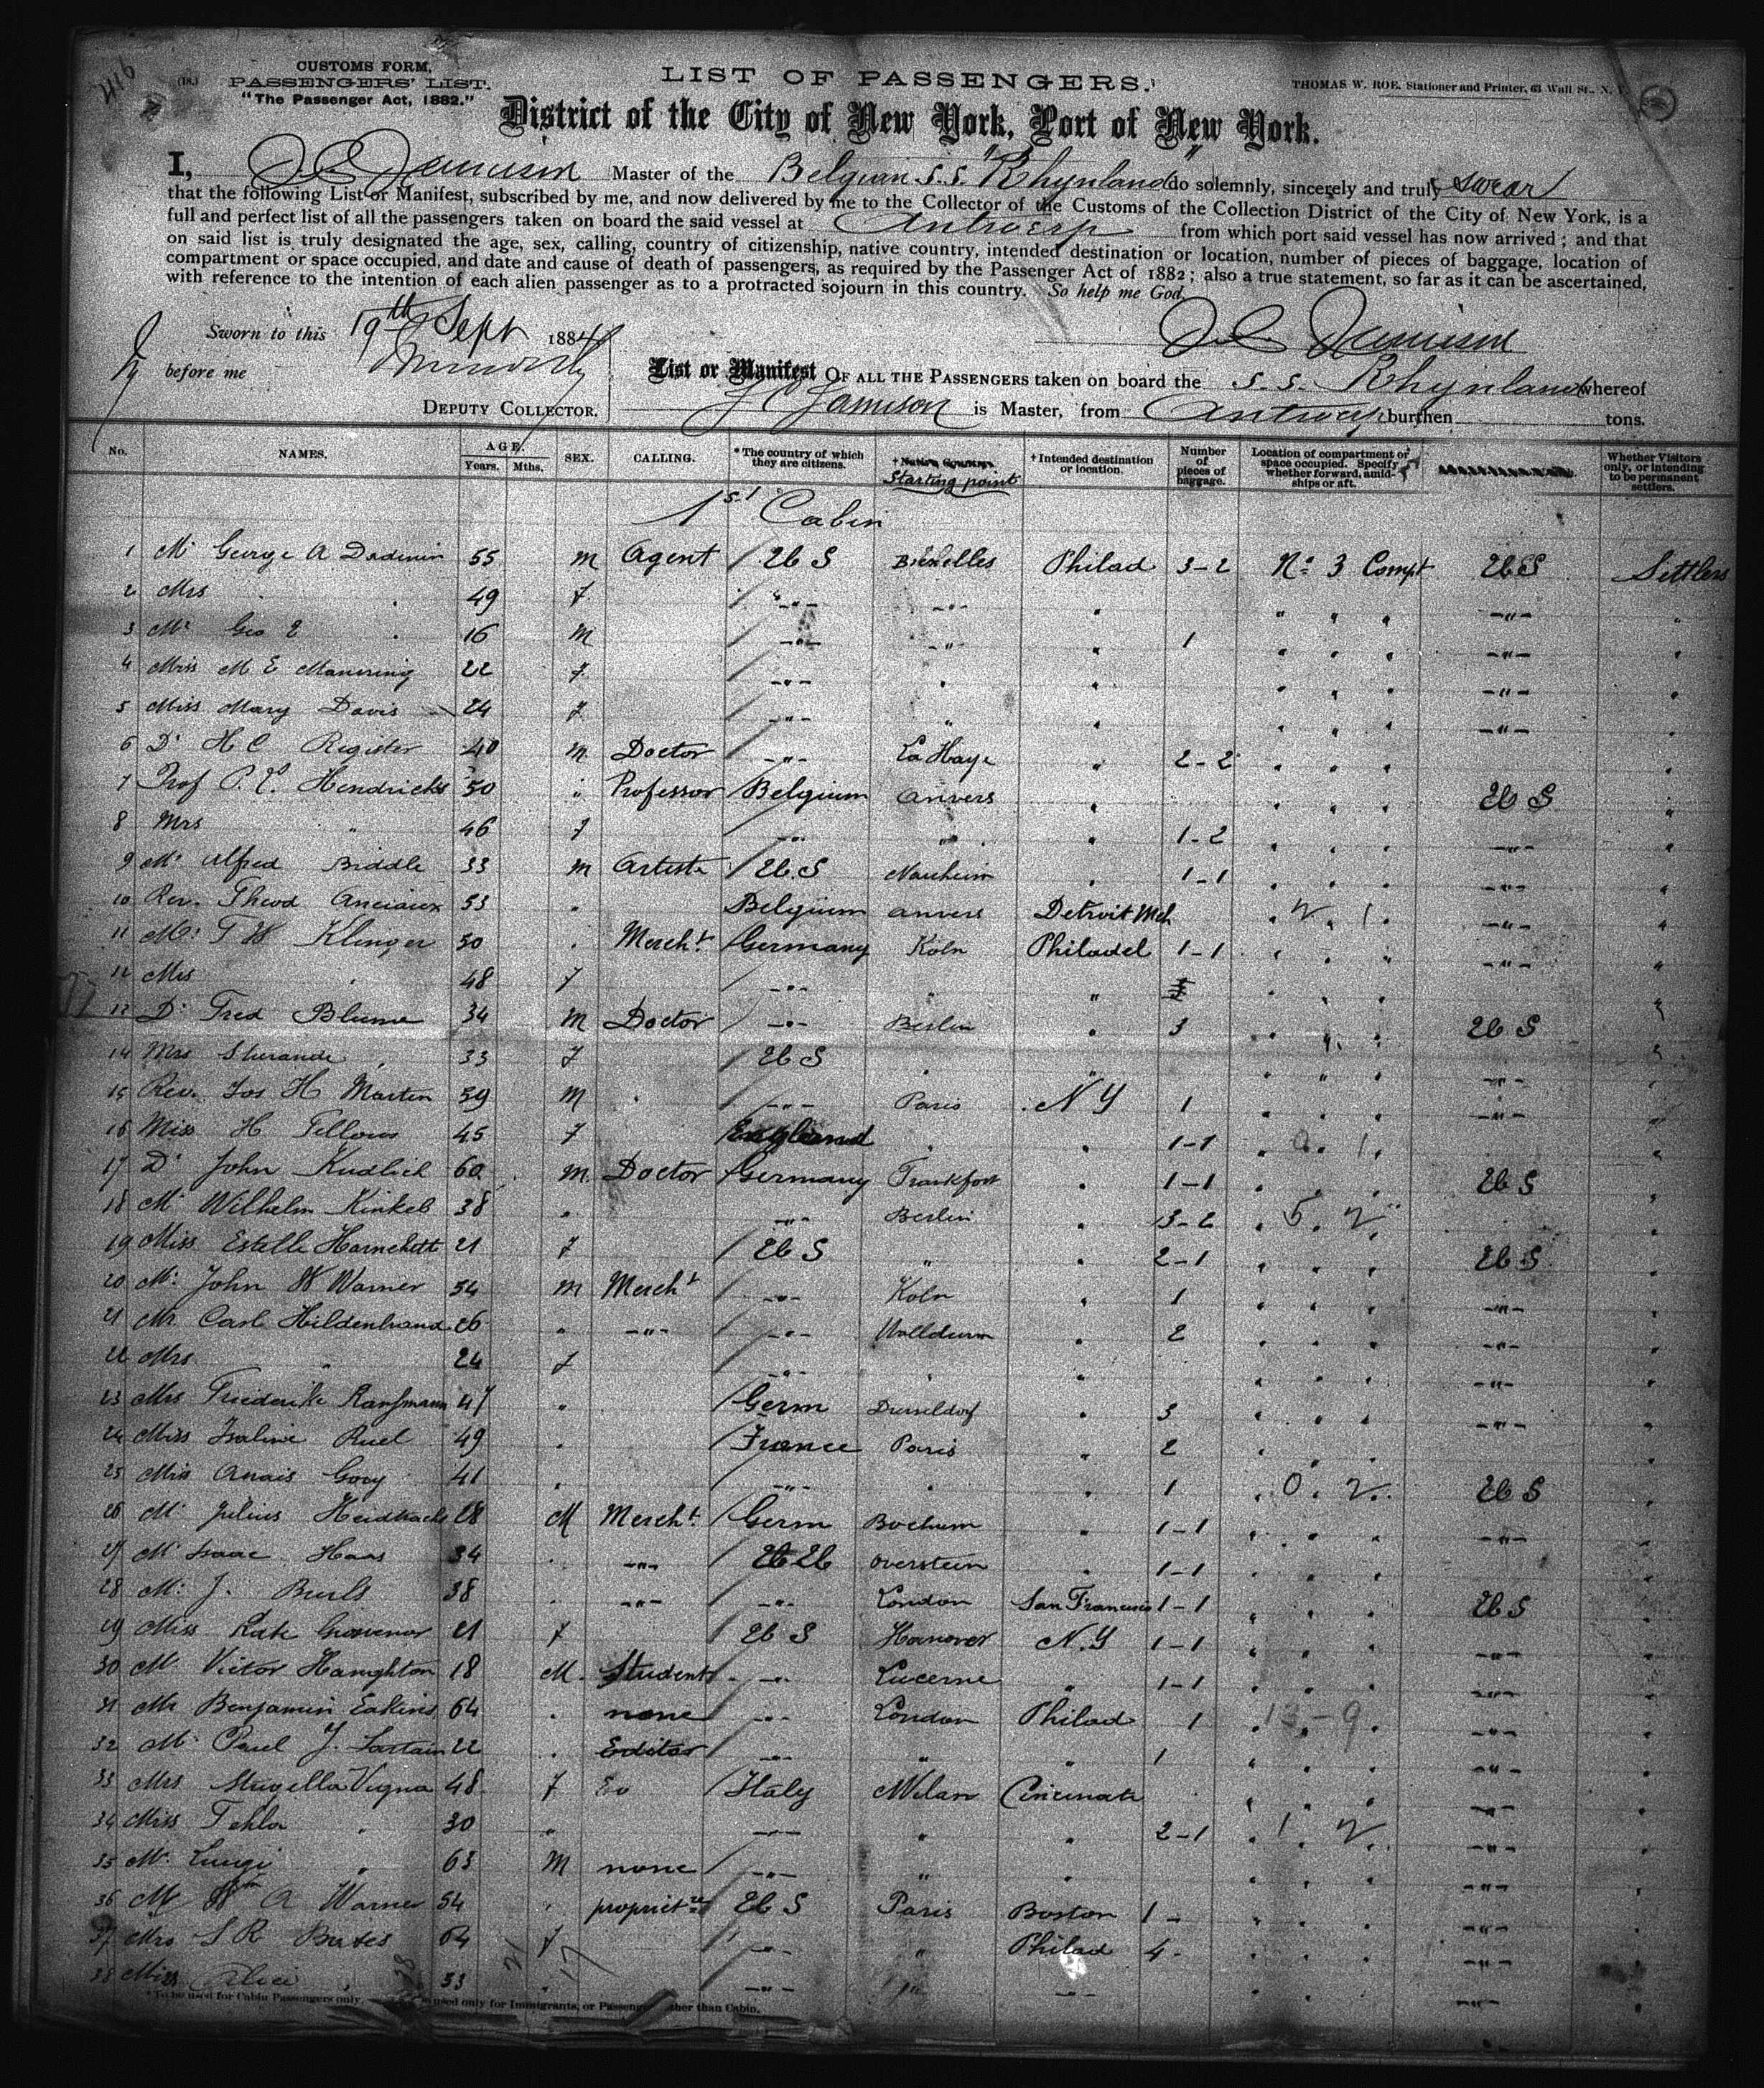 4116
(18.)
CUSTOMS FORM,
PASSENGERS' LIST.
"The Passenger Act, 1882."
LIST OF PASSENGERS.
THOMAS W. ROE, Stationer and Printer, 63 Wall St., N. Y.
District of the City of New York, Port of New York.
I, J C Jamison Master of the Belgian S.S. "Rhynland" do solemnly, sincerely and truly swear
that the following List or Manifest, subscribed by me, and now delivered by me to the Collector of the Customs of the Collection District of the City of New York, is a
full and perfect list of all the passengers taken on board the said vessel at Antwerp from which port said vessel has now arrived; and that
on said list is truly designated the age, sex, calling, country of citizenship, native country, intended destination or location, number of pieces of baggage, location of
compartment or space occupied, and date and cause of death of passengers, as required by the Passenger Act of 1882; also a true statement, so far as it can be ascertained,
with reference to the intention of each alien passenger as to a protracted sojourn in this country. So help me God.
Sworn to this 19th Sept 1884
J C Jamison
before me
DEPUTY COLLECTOR.
List or Manifest OF ALL THE PASSENGERS taken on board the S. S. Rhynland whereof
J C Jamison is Master, from Antwerp burthen tons.
No. NAMES. AGE. Years. Mths. SEX. CALLING. *The country of which they are citizens. Starting point †Intended destination or location. Number of pieces of baggage. Location of compartment or space occupied. Specify whether forward, amidships or aft. Whether Visitors only, or intending to be permanent settlers.
1st Cabin
1 Mr George A 55 M Agent / U S Bruxelles Philad 3-2 No 3 Compt U S Settlers
2 Mrs " 49 F / -"- -"- " " " " -"- "
3 Mr Geo E " 16 M / -"- -"- " 1 " " " -"- "
4 Miss M E Manering 22 F / -"- " " " " " -"- "
5 Miss Mary Davis 24 F / -"- " " " " " -"-
6 Dr H C Register 40 M Doctor / -"- La Haye " 2-2 " " " "
7 Prof P. Hendricks 50 " Professor / Belgium Anvers " " " " U S "
8 Mrs " 46 F / -"- " " 1-2 " " " -"- "
9 Mr Alfred Biddle 33 M Artiste / U.S Nauheim " 1-1 " " " -"- "
10 Rev. Theod Anciaux 53 " Belgium Anvers Detroit Mch " 2 . 1 . -"- "
11 Mr F W Klinger 50 " Mercht / Germany Koln Philadel 1-1 " " " -"- "
12 Mrs " 48 F / -"- " " " " " "
13 Dr Fred Blume 34 M Doctor / -"- Berlin " 3 " " " U S "
14 Mrs 33 F / U S " " " " " -"-
15 Rev. Jos H Martin 59 M " / -"- Paris N Y 1 " " " -"- "
16 Miss H Fellows 45 F / England " " 1-1 "
17 Dr John Kudlich 60 M Doctor / Germany Frankfort " 1-1 " " " U S "
18 Mr Wilhelm Kinkel 38 " -"- Berlin " 3-2 . 5 . 2
19 Miss Estelle 21 F / U S " " 2-1 " " " U S "
20 Mr John W Warner 54 M Mercht / -"- Koln " 1 " " " -"- "
21 Mr Carl Hildenbrand 26 " -"- / -"- Walldurn " 2 " " " -"- "
22 Mrs " 24 F / -"- " " " " " -"- "
23 Mrs Friederike Kaufmann 47 " / Germ Dusseldorf " 3 " " " -"- "
24 Miss Ruel 49 " / France Paris " 2 "
25 Miss Anais Gory 41 " -"- " " 1 . 0 . 2 . U S "
26 Mr Julius 28 M Mercht / Germ Bochum " 1-1 " " " -"- "
27 Mr Isaac Haas 34 " -"- / Overstein " 1-1 " " "
28 Mr J. 38 " -"- / -"- London San Francisco 1-1 " " " U S "
29 Miss Kate Grosvenor 21 F / U S Hanover N.Y 1-1 " " " -"- "
30 Mr Victor Haughton 18 M. Student / -"- Lucerne " 1-1 " " " -"- "
31 Mr Benjamin Eakins 64 " none / -"- London Philad 1 13-9 -"- "
32 Mr Paul J. Sartain 22 " Editor / -"- " " 1 -"- "
33 Mrs Vigna 48 F / Italy Milan Cincinati " " " -"- "
34 Miss Tekla " 30 " -"- " " 2-1 . 1 . 2 . -"- "
35 Mr Luigi " 63 M none / -"- " " " " " -"- "
36 Mr Wm A Warner 54 " propriet / U S Paris Boston 1 - " " " -"- "
37 Mrs S R Bates 64 F / -"- " Philad 4 - " " " -"- "
38 Miss Alice " 33 " / -"- " -"- -"-
*To be used for Cabin Passengers only. used only for Immigrants, or Passengers other than Cabin.